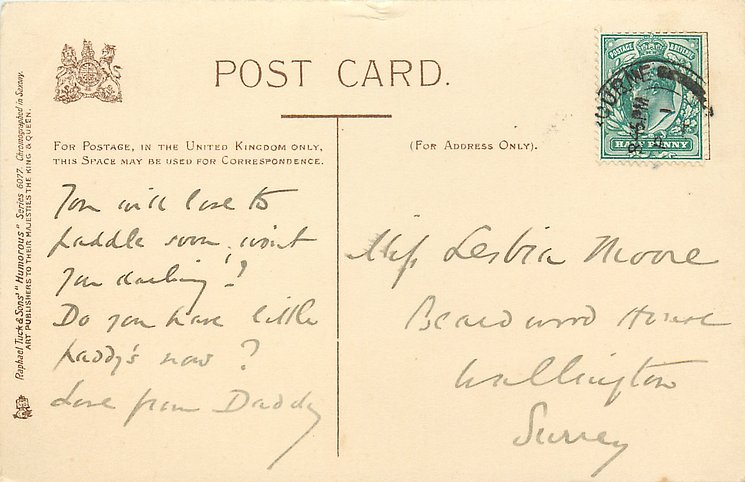 POST CARD.
FOR POSTAGE, IN THE UNITED KINGDOM ONLY,
THIS SPACE MAY BE USED FOR CORRESPONDENCE.
(FOR ADDRESS ONLY).
Raphael Tuck & Sons' "Humorous" Series 6077. Chromographed in Saxony.
ART PUBLISHERS TO THEIR MAJESTIES THE KING & QUEEN.
POSTAGE REVENUE
HALF PENNY
OURNE
PM
You will love to
paddle soon, won't
you darling!?
Do you have little
paddy's now?
Love from Daddy
Miss Lesbia Moore
Beardwood House
Wallington
Surrey